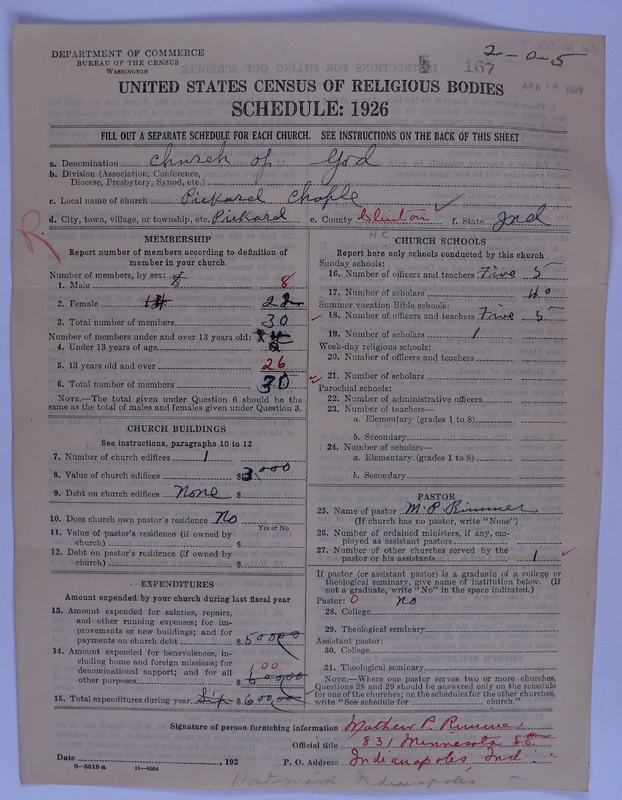 DEPARTMENT OF COMMERCE
BUREAU OF THE CENSUS
WASHINGTON
2-0-5
167
APR 14 1927
UNITED STATES CENSUS OF RELIGIOUS BODIES
SCHEDULE: 1926
FILL OUT A SEPARATE SCHEDULE FOR EACH CHURCH. SEE INSTRUCTIONS ON THE BACK OF THIS SHEET
a. Denomination Church of God
b. Division (Association, Conference,
Diocese, Presbytery, Synod, etc.)
c. Local name of church Pickard Chaple
d. City, town, village, or township, etc. Pickard e. County Clinton f. State Ind
R
H.C.
MEMBERSHIP
Report number of members according to definition of
member in your church
Number of members, by sex:
1. Male 8
2. Female 22
3. Total number of members 30
Number of members under and over 13 years old:
4. Under 13 years of age
5. 13 years old and over 26
6. Total number of members 30
NOTE.—The total given under Question 6 should be
same as the total of males and females given under Question 3.
CHURCH BUILDINGS
See instructions, paragraphs 10 to 12
7. Number of church edifices 1
8. Value of church edifices $3000
9. Debt on church edifices None $
10. Does church own pastor's residence No
Yes or No
11. Value of pastor's residence (if owned by
church) $
12. Debt on pastor's residence (if owned by
church) $
EXPENDITURES
Amount expended by your church during last fiscal year
13. Amount expended for salaries, repairs,
and other running expenses; for im-
provements or new buildings; and for
payments on church debt $500 00
14. Amount expended for benevolences, in-
cluding home and foreign missions; for
denominational support; and for all
other purposes 100 $600 00
15. Total expenditures during year $600 00
CHURCH SCHOOLS
Report here only schools conducted by this church
Sunday schools:
16. Number of officers and teachers Five 5
17. Number of scholars 40
Summer vacation Bible schools:
18. Number of officers and teachers Five 5
19. Number of scholars 1
Week-day religious schools:
20. Number of officers and teachers
21. Number of scholars
Parochial schools:
22. Number of administrative officers
23. Number of teachers—
a. Elementary (grades 1 to 8)
b. Secondary
24. Number of scholars—
a. Elementary (grades 1 to 8)
b. Secondary
PASTOR
25. Name of pastor M. P. Rimmer
(If church has no pastor, write "None")
26. Number of ordained ministers, if any, em-
ployed as assistant pastors
27. Number of other churches served by the
pastor or his assistants 1
If pastor (or assistant pastor) is a graduate of a college or
theological seminary, give name of institution below. (If
not a graduate, write "No" in the space indicated.)
Pastor: 0 no
28. College
29. Theological seminary
Assistant pastor:
30. College
31. Theological seminary
NOTE.—Where one pastor serves two or more churches,
Questions 28 and 29 should be answered only on the schedule
for one of the churches; on the schedules for the other churches,
write "See schedule for church."
Signature of person furnishing information Mathew P. Rimmer
Official title 831 Minnesota St.
Date , 192 P. O. Address Indianapolis, Ind
8—5518 a 11—9064
Postmark Indianapolis